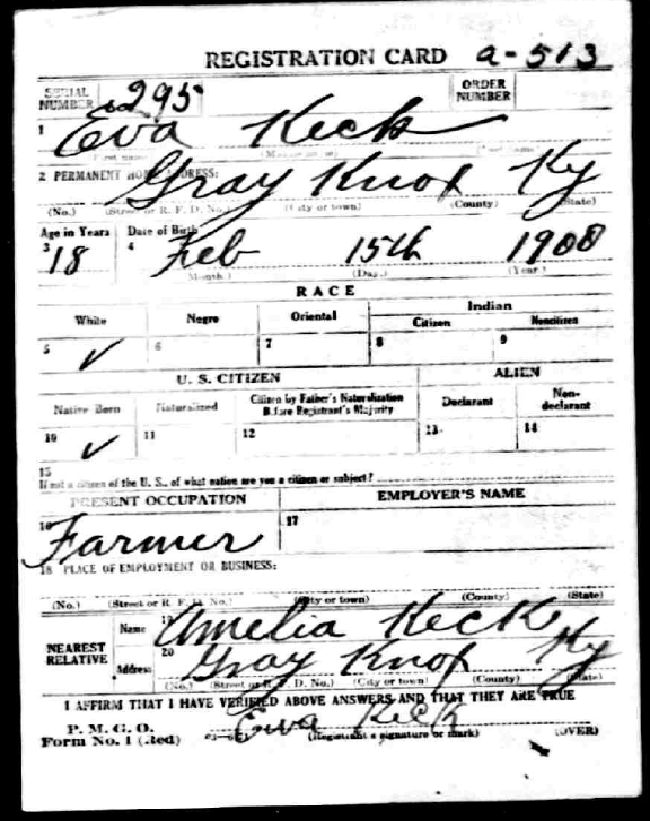 REGISTRATION CARD a-513
SERIAL NUMBER 295 ORDER NUMBER
1 Eva Keck
2 PERMANENT HOME ADDRESS:
Gray Knox Ky
(No.) (Street or R. F. D. No.) (City or town) (County) (State)
Age in Years Date of Birth
3 18 4 Feb 15th 1900
(Month.) (Day.) (Year.)
RACE
White Negro Oriental Indian
Citizen Noncitizen
5 ✓ 6 7 8 9
U. S. CITIZEN ALIEN
Native Born Naturalized Citizen by Father's Naturalization Before Registrant's Majority Declarant Non-declarant
10 ✓ 11 12 13 14
15
If not a citizen of the U. S., of what nation are you a citizen or subject?
PRESENT OCCUPATION EMPLOYER'S NAME
16 Farmer 17
18 PLACE OF EMPLOYMENT OR BUSINESS:
(No.) (Street or R. F. D. No.) (City or town) (County) (State)
NEAREST RELATIVE Name 19 Amelia Keck
Address 20 Gray Knox Ky
(No.) (Street or R. F. D. No.) (City or town) (County) (State)
I AFFIRM THAT I HAVE VERIFIED ABOVE ANSWERS AND THAT THEY ARE TRUE
P. M. G. O.
Form No. 1 (Red) Eva Keck
(Registrant's signature or mark) (OVER)